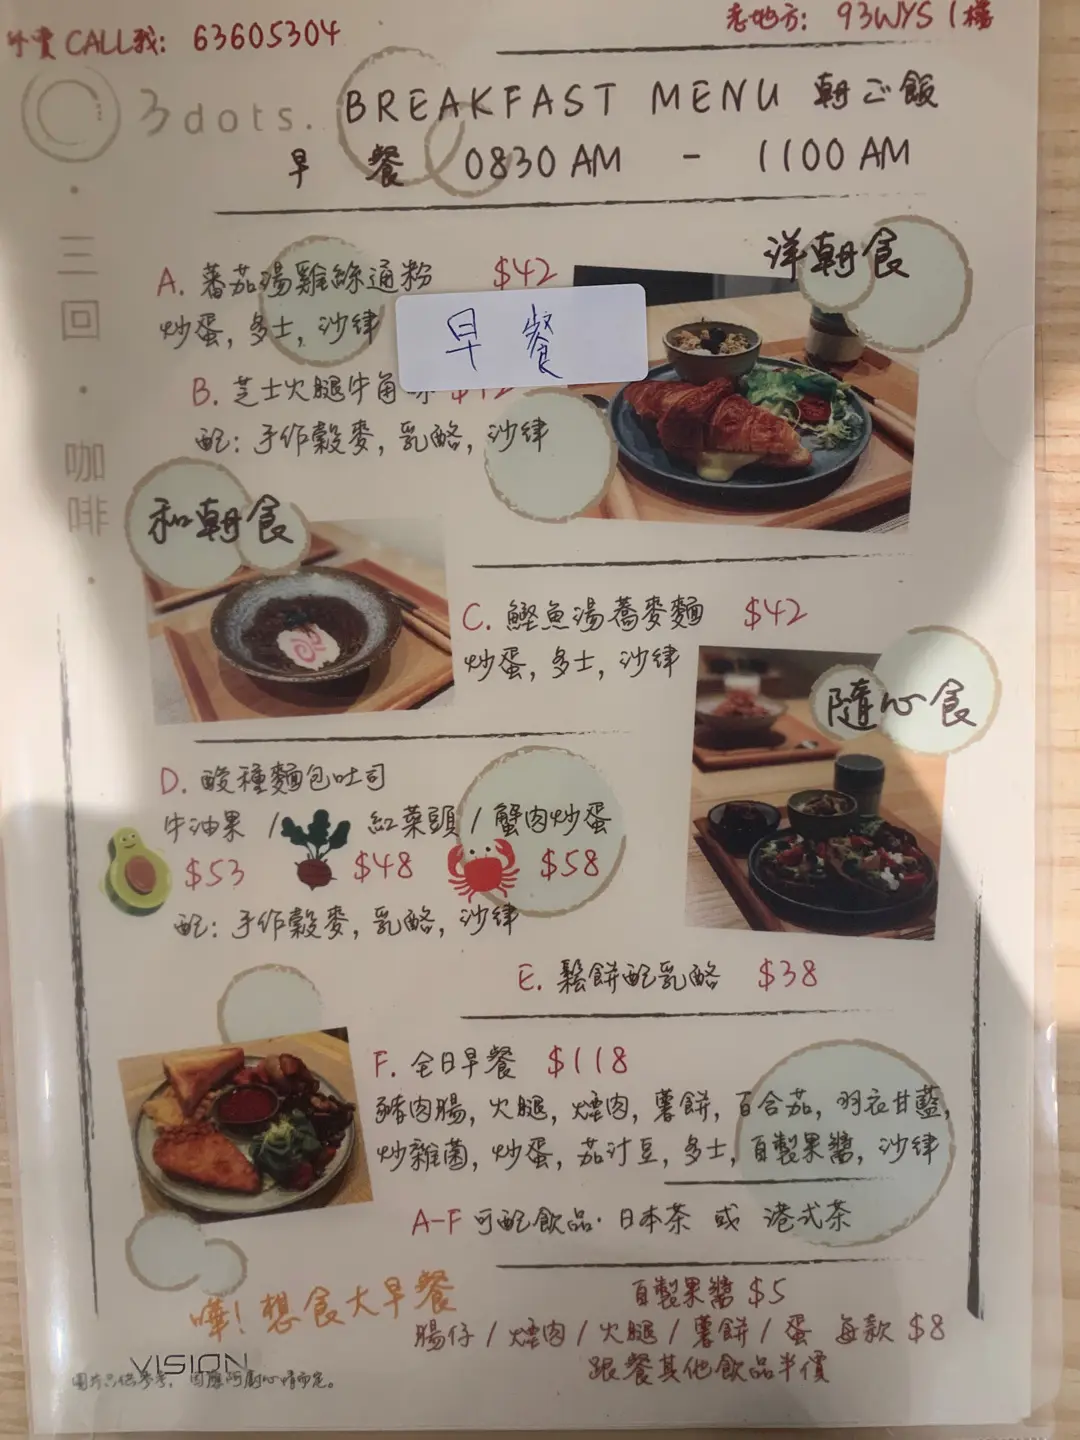 外賣 CALL我: 63605304
老地方: 93WYS 1樓
3dots.
BREAKFAST MENU 朝ご飯
早 餐 0830 AM - 1100 AM
三回·咖啡
洋朝食
A. 蕃茄湯雞絲通粉 $42
炒蛋, 多士, 沙律
早餐
B. 芝士火腿牛角
配: 手作穀麥, 乳酪, 沙律
和朝食
C. 鰹魚湯蕎麥麵 $42
炒蛋, 多士, 沙律
隨心食
D. 酸種麵包吐司
牛油果 / 紅菜頭 / 蟹肉炒蛋
$53 $48 $58
配: 手作穀麥, 乳酪, 沙律
E. 鬆餅配乳酪 $38
F. 全日早餐 $118
豬肉腸, 火腿, 煙肉, 薯餅, 百合茄, 羽衣甘藍,
炒雜菌, 炒蛋, 茄汁豆, 多士, 自製果醬, 沙律
A-F 可配飲品· 日本茶 或 港式茶
嘩! 想食大早餐
自製果醬 $5
腸仔 / 煙肉 / 火腿 / 薯餅 / 蛋 每款 $8
跟餐其他飲品半價
VISION
圖片只供參考,